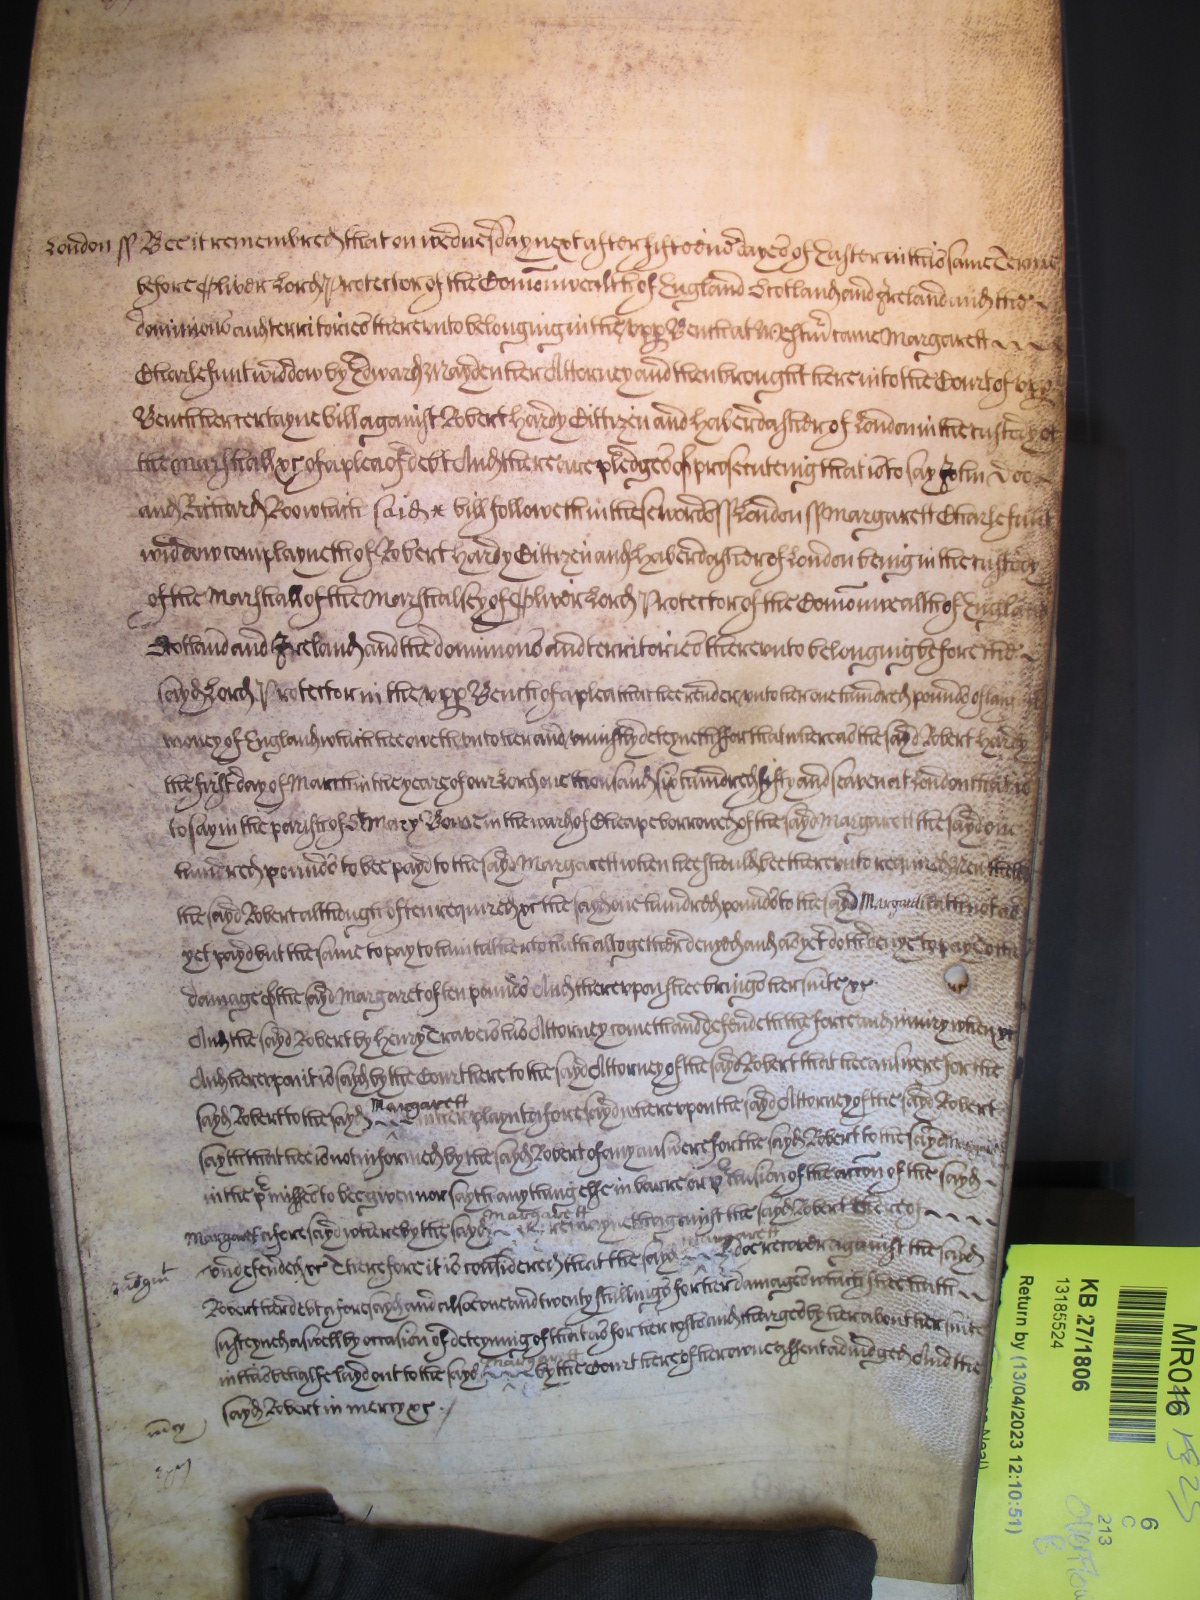 London ss Bee it remembred that on wednesday next after fifteene dayes of Easter in this same Terme
before Oliver Lord Protector of the Comonwealth of England Scotland and Ireland and the
dominions and territories thereunto belonging in the upp Bench at Westmr came Margarett
Charlesunt widdow by Edward Brayden her Attorney and then brought here into the Court of upp
Bench her certayne bill against Robert Hardy Cittizen and Haberdasher of London in the custody of
the Marshall &c of a plea of debt And there are pledges of prosecuteing that is to say John Doo
and Richard Roo which said bill followeth in these words ss London ss Margarett Charlesunt
widdow complayneth of Robert Hardy Cittizen and Haberdasher of London being in the custody
of the Marshall of the Marshalsey of Oliver Lord Protector of the Comonwealth of England
Scotland and Ireland and the dominions and territories thereunto belonging before the
sayd Lord Protector in the upp Bench of a plea that hee render unto her one hundred pounds of
money of England which hee oweth unto her and uniustly deteyneth For that whereas the sayd Robert Hardy
the first day of March in the yeare of our Lord one thousand six hundred fifty and seaven at London that is
to say in the parish of St Mary Bowe in the ward of Cheape borrowed of the sayd Margarett the sayd one
hundred pounds to bee payd to the sayd Margarett when hee should bee thereunto required Neverthelesse
the sayd Robert although often required &c the sayd one hundred pounds to the sayd Margarett hath not as
yet payd but the same to pay to her hitherto hath altogether denyed and as yet doth denye to pay To the
damage of the sayd Margaret of ten pounds And thereupon shee brings her suite &c
And the sayd Robert by Henry Travers his Attorney cometh and defendeth the force and iniury when &c
And hereupon it is sayd by the Court here to the sayd Attorney of the sayd Robert that hee answere for the
sayd Robert to the sayd Margarett in her playnt aforesayd whereupon the sayd Attorney of the sayd Robert
sayth that hee is not informed by the sayd Robert of any answere for the sayd Robert to the sayd Margarett
in the pmisses to bee given nor sayth any thing else in barre or pclusion of the accon of the sayd
Margaret aforesayd whereby the sayd Margarett remayneth against the sayd Robert thereof
iudgmt undefended &c Therefore it is considered that the sayd Margarett doe recover against the sayd
Robert her debt aforesayd and alsoe one and twenty shillings for her damages which shee hath
susteyned aswell by occasion of deteyning of that as for her costs and charges by her about her suite
in this behalfe layd out to the sayd Margarett by the Court here of her owne assent adiudged And the
mcy sayd Robert in mercy &c
MR016
KB 27/1806
13185524
Return by (13/04/2023 12:10:51)
6
C
213